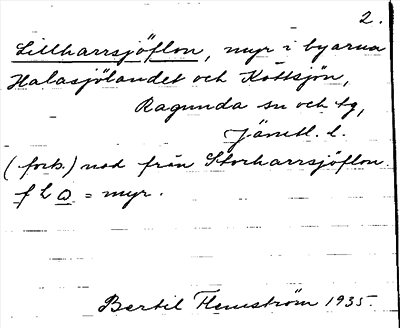 2.
Lillharrsjöflon, myr i byarna
Halasjölandet och Köttsjön,
Ragunda sn och tg,
Jämtl. l.
(forts.) nad från Storharrsjöflon.
= myr.
Bertil Flemström 1935.